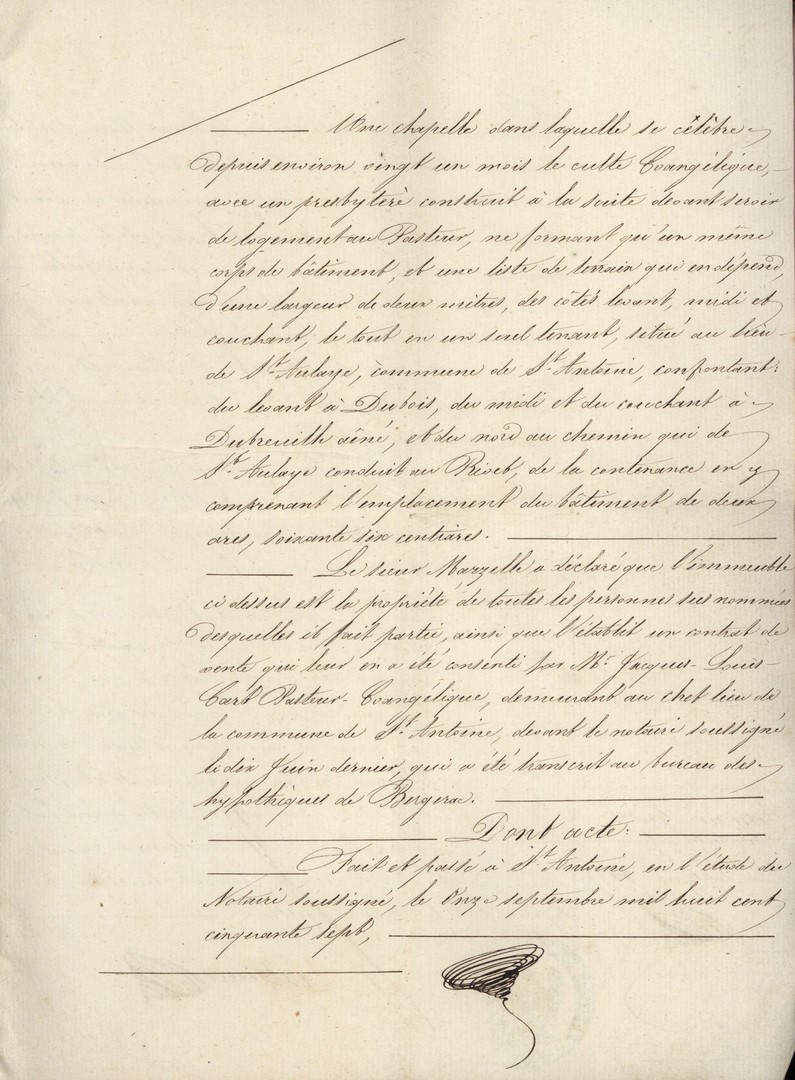 Une chapelle dans laquelle se célèbre
depuis environ vingt un mois le culte Evangélique,
avec un presbytère construit à la suite devant servir
de logement au Pasteur, ne formant qu'un même
corps de bâtiment, et une liste de terrain qui en dépend,
d'une largeur de deux mètres, des côtés levant, midi et
couchant; le tout en un seul tenant, situé au lieu
de St. Aulaye, commune de St. Antoine, confrontant:
du levant à Dubois, du midi et du couchant à
Dubreuilh aîné, et du nord au chemin qui de
St. Aulaye conduit au, de la contenance en y
comprenant l'emplacement du bâtiment de deux
ares, soixante six centiares.
Le sieur Marzelle a déclaré que l'immeuble
ci dessus est la propriété de toutes les personnes sus nommées
desquelles il fait partie, ainsi que l'établit un contrat de
vente qui leur en a été consenti par Mr. Jacques-Louis-
Pasteur-Evangélique, demeurant au chef lieu de
la commune de St. Antoine, devant le notaire soussigné
le dix Juin dernier, qui a été transcrit au bureau des
hypothèques de Bergerac.
Dont acte:
Fait et passé à St. Antoine, en l'étude du
Notaire soussigné, le onze septembre mil huit cent
cinquante sept,